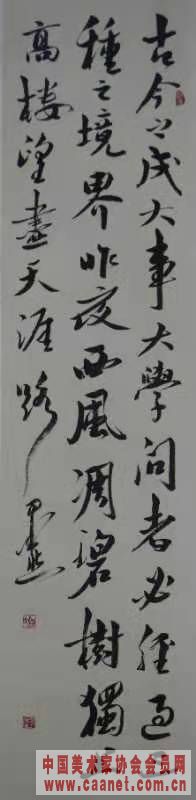 古今之成大事大学问者必经过三
种之境界昨夜西风凋碧树独上
高楼望尽天涯路
中国美术家协会会员网
www.caanet.com.cn